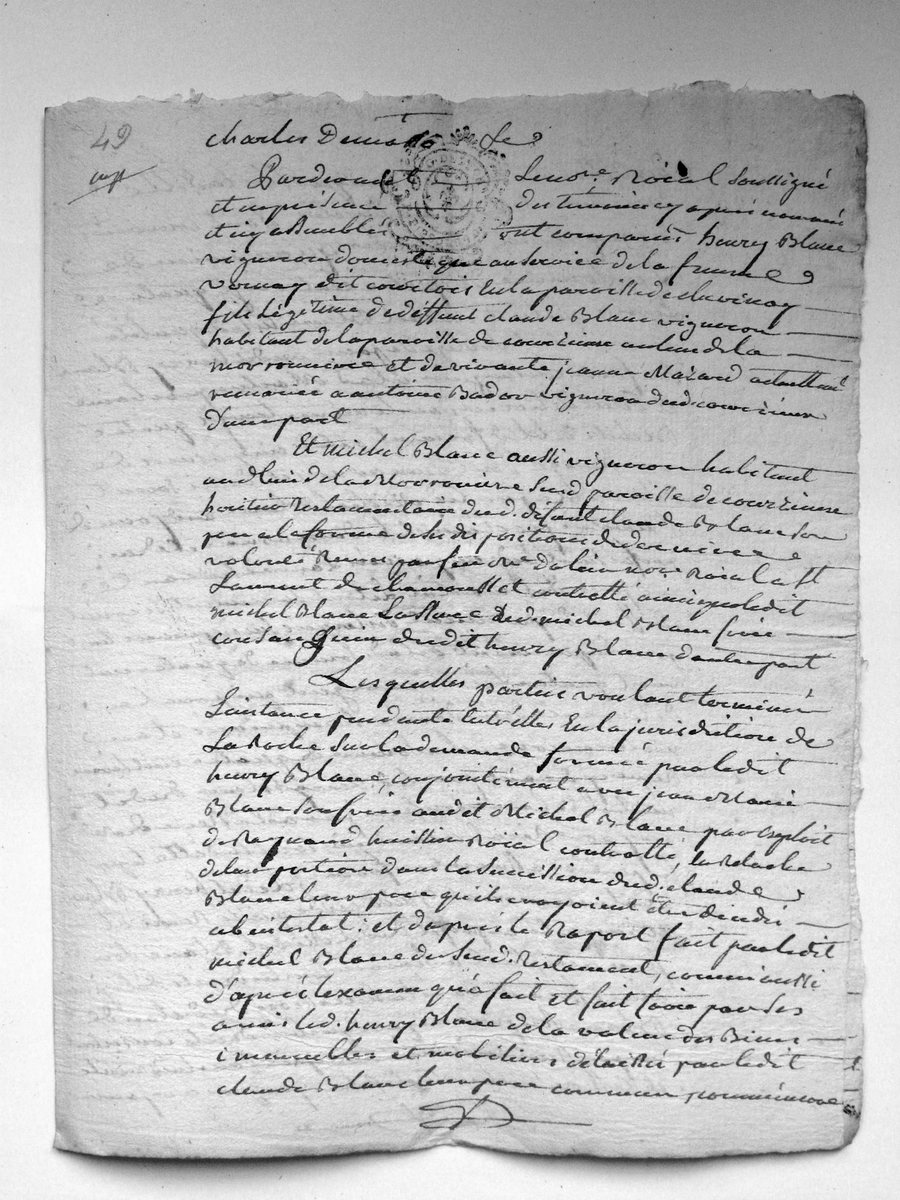 49
charles Dema
Pardevant Le no.re Roial soussigné
et en présence des temoins cy après nommés
et cy assemblés ont comparus henry Blanc
vigneron domestique au service de la femme
vernay dit courtois en la paroisse de chevinay
fils légitime de deffunt claude Blanc vigneron
habitant de la paroisse de courzieu au lieu de la
morronniere et de vivante jeanne Mazard actuellem.t
remariée a antoine Badon vigneron dud. courzieu
d'une part
Et michel Blanc aussi vigneron habitant
aud lieu de la Morroniere susd. paroisse de courzieu
heritier testamentaire dud. défunt claude Blanc son
pere a la forme de ses dispositions de derniere
volonté Reçues par feu no.re noy.e Roial a st
Laurent de chamousset et controllé ainsi que ledit
michel Blanc L'assure led. michel Blanc frere
consanguin dudit henry Blanc d'autre part
Lesquelles parties voulant terminer
L'instance pendante entr'elles En la jurisdiction de
La Roche sur la demande formée par ledit
henry Blanc, conjointement avec jean Marie
Blanc son frere audit Michel Blanc par exploit
de Raynaud huissier Roial controllé, en Relache
de leur portion dans la Succession dud. claude
Blanc leur pere qu'ils croyoient être décédé
ab intestat: et d'après le Raport fait par ledit
michel Blanc du susd. Testament, comm'aussi
d'après l'examen qu'a fait et fait faire par ses
amis led. henry Blanc de la valeur des Biens
immeubles et mobiliers délaissés par ledit
claude Blanc leur pere commun,